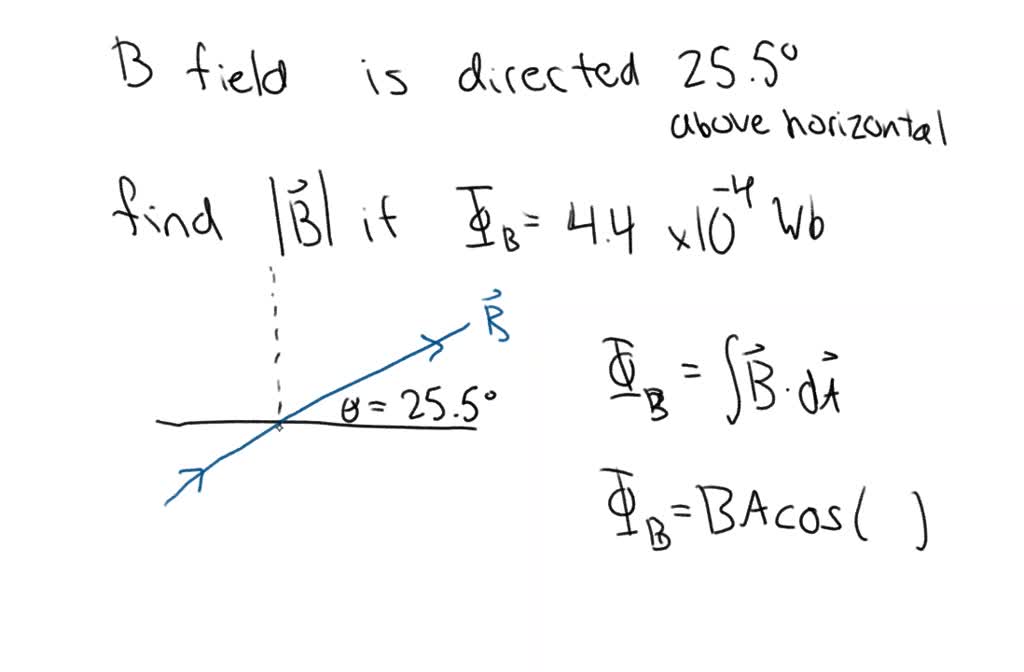 B field is directed 25.5°
above horizontal
find |B⃗| if Φ_B = 4.4 ×10⁻⁴ Wb
B⃗
θ = 25.5°
Φ_B = ∫B⃗·dA⃗
Φ_B = BAcos( )